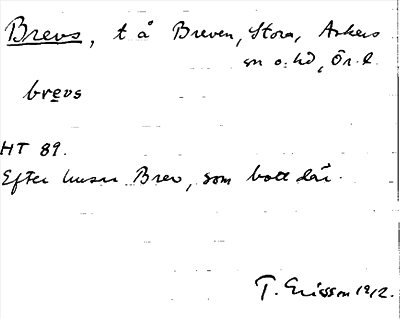 Brevs, t å Breven, Stora, Askers
sn o. hd, Ör. l.
brevs
HT 89.
Efter husar Brev, som bott där.
T. Ericsson 1912.